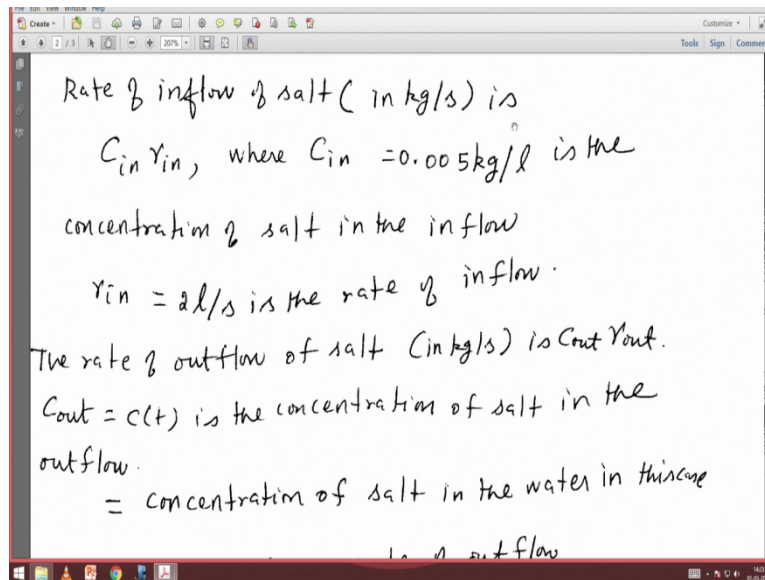 File Edit View Window Help
Create
Customize
2 / 3
207%
Tools Sign Comment
Rate of inflow of salt ( in kg/s) is
Cin rin, where Cin =0.005kg/l is the
concentration of salt in the inflow
rin = 2l/s is the rate of inflow.
The rate of outflow of salt (in kg/s) is Cout rout.
Cout = c(t) is the concentration of salt in the
outflow.
= concentration of salt in the water in this case
of outflow